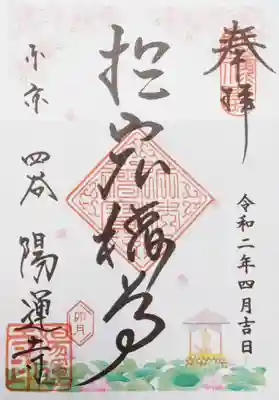 奉拝
令和二年四月吉日
於岩稲荷
卯月
東京 四谷 陽運寺